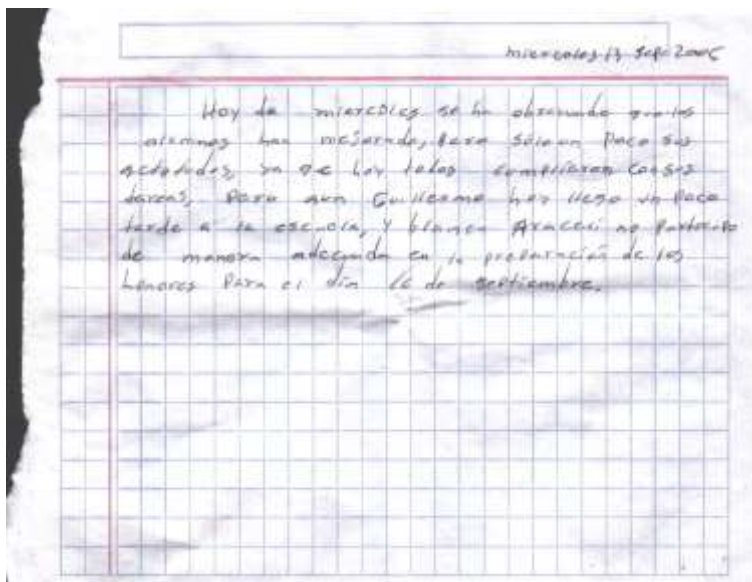 miercoles 13 Sep. 2006
Hoy de miercoles se ha observado que los
alumnos han mejorado, pero sólo un Poco sus
actitudes, ya que hoy todos cumplieron con sus
tareas, Pero aun Guillermo hoy llego un Poco
tarde a la escuela, y blanca Araceli no Participo
de manera adecuada en la preparación de los
honores Para el día 16 de septiembre.